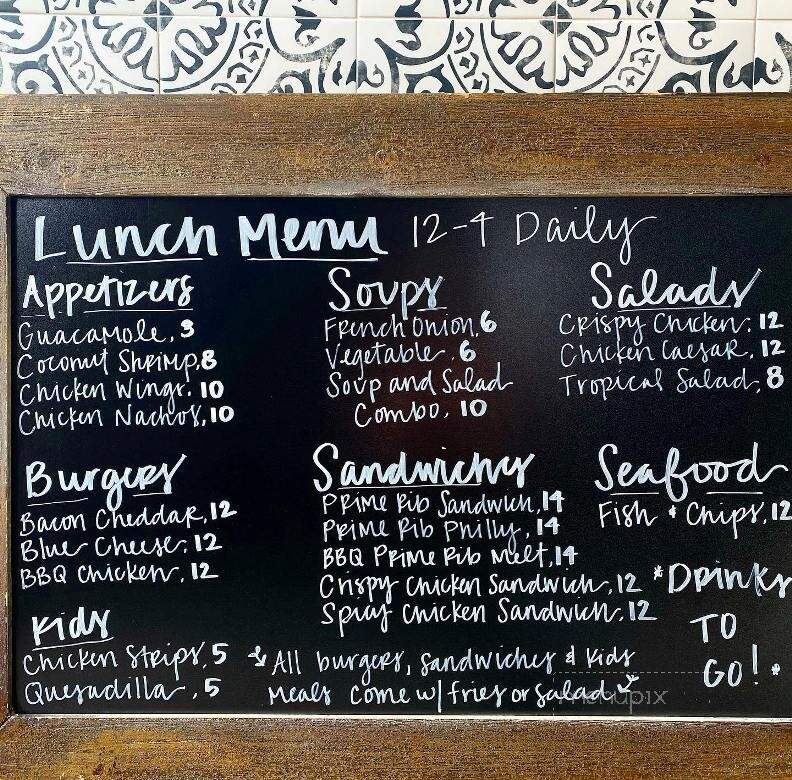 Lunch Menu 12-4 Daily
Appetizers
Guacamole. 3
Coconut Shrimp. 8
Chicken Wings. 10
Chicken Nachos. 10
Soups
French Onion. 6
Vegetable. 6
Soup and Salad
Combo. 10
Salads
Crispy Chicken. 12
Chicken Caesar. 12
Tropical Salad. 8
Burgers
Bacon Cheddar. 12
Blue Cheese. 12
BBQ Chicken. 12
Sandwiches
Prime Rib Sandwich. 14
Prime Rib Philly. 14
BBQ Prime Rib Melt. 14
Crispy Chicken Sandwich. 12
Spicy Chicken Sandwich. 12
Seafood
Fish & Chips. 12
*Drinks
TO
GO!*
Kids
Chicken Strips. 5
Quesadilla. 5
All burgers, sandwiches & kids
meals come w/ fries or salad
menupix